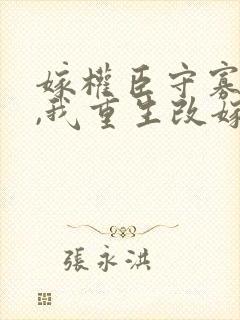 嫁權臣守寡
,我重生改嫁
張永洪